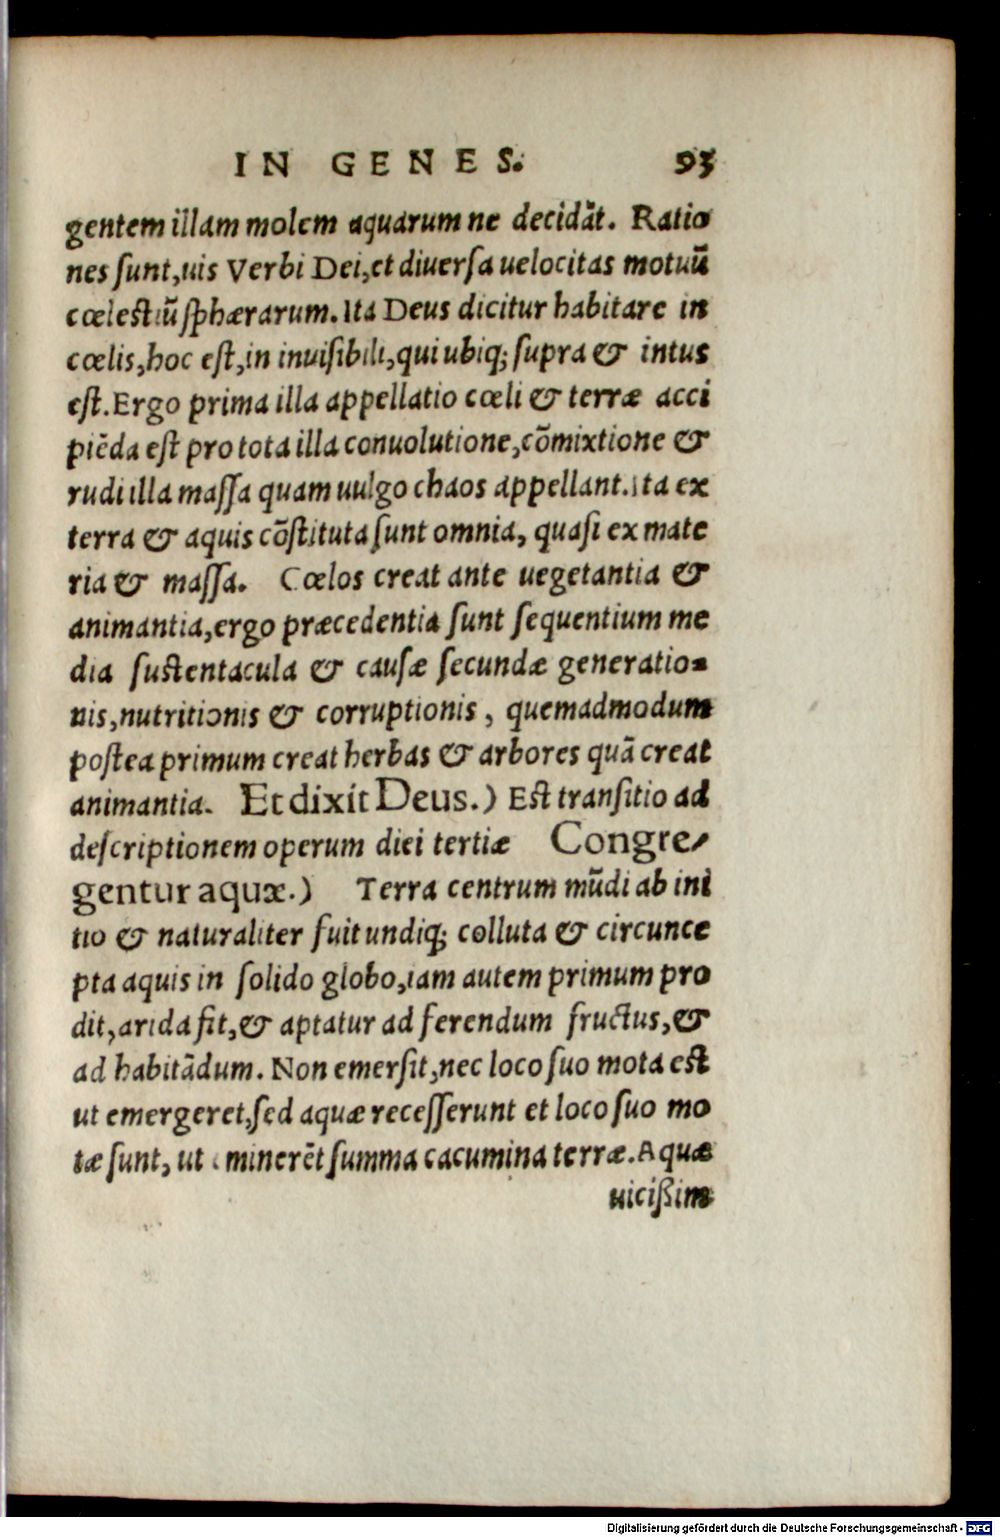 IN GENES. 93
gentem illam molem aquarum ne decidāt. Ratio
nes sunt, uis Verbi Dei, et diuersa uelocitas motuū
cœlestiū sphærarum. Ita Deus dicitur habitare in
cœlis, hoc est, in inuisibili, qui ubiq; supra & intus
est. Ergo prima illa appellatio cœli & terræ acci
piēda est pro tota illa conuolutione, cōmixtione &
rudi illa massa quam uulgo chaos appellant. Ita ex
terra & aquis cōstituta sunt omnia, quasi ex mate
ria & massa. Cœlos creat ante uegetantia &
animantia, ergo præcedentia sunt sequentium me
dia sustentacula & causæ secundæ generatio-
nis, nutritionis & corruptionis, quemadmodum
postea primum creat herbas & arbores quā creat
animantia. Et dixit Deus.) Est transitio ad
descriptionem operum diei tertiæ Congre-
gentur aquæ.) Terra centrum mūdi ab ini
tio & naturaliter fuit undiq; colluta & circunce
pta aquis in solido globo, iam autem primum pro
dit, arida fit, & aptatur ad ferendum fructus, &
ad habitādum. Non emersit, nec loco suo mota est
ut emergeret, sed aquæ recesserunt et loco suo mo
tæ sunt, ut eminerēt summa cacumina terræ. Aquæ
uicißim
Digitalisierung gefördert durch die Deutsche Forschungsgemeinschaft - DFG